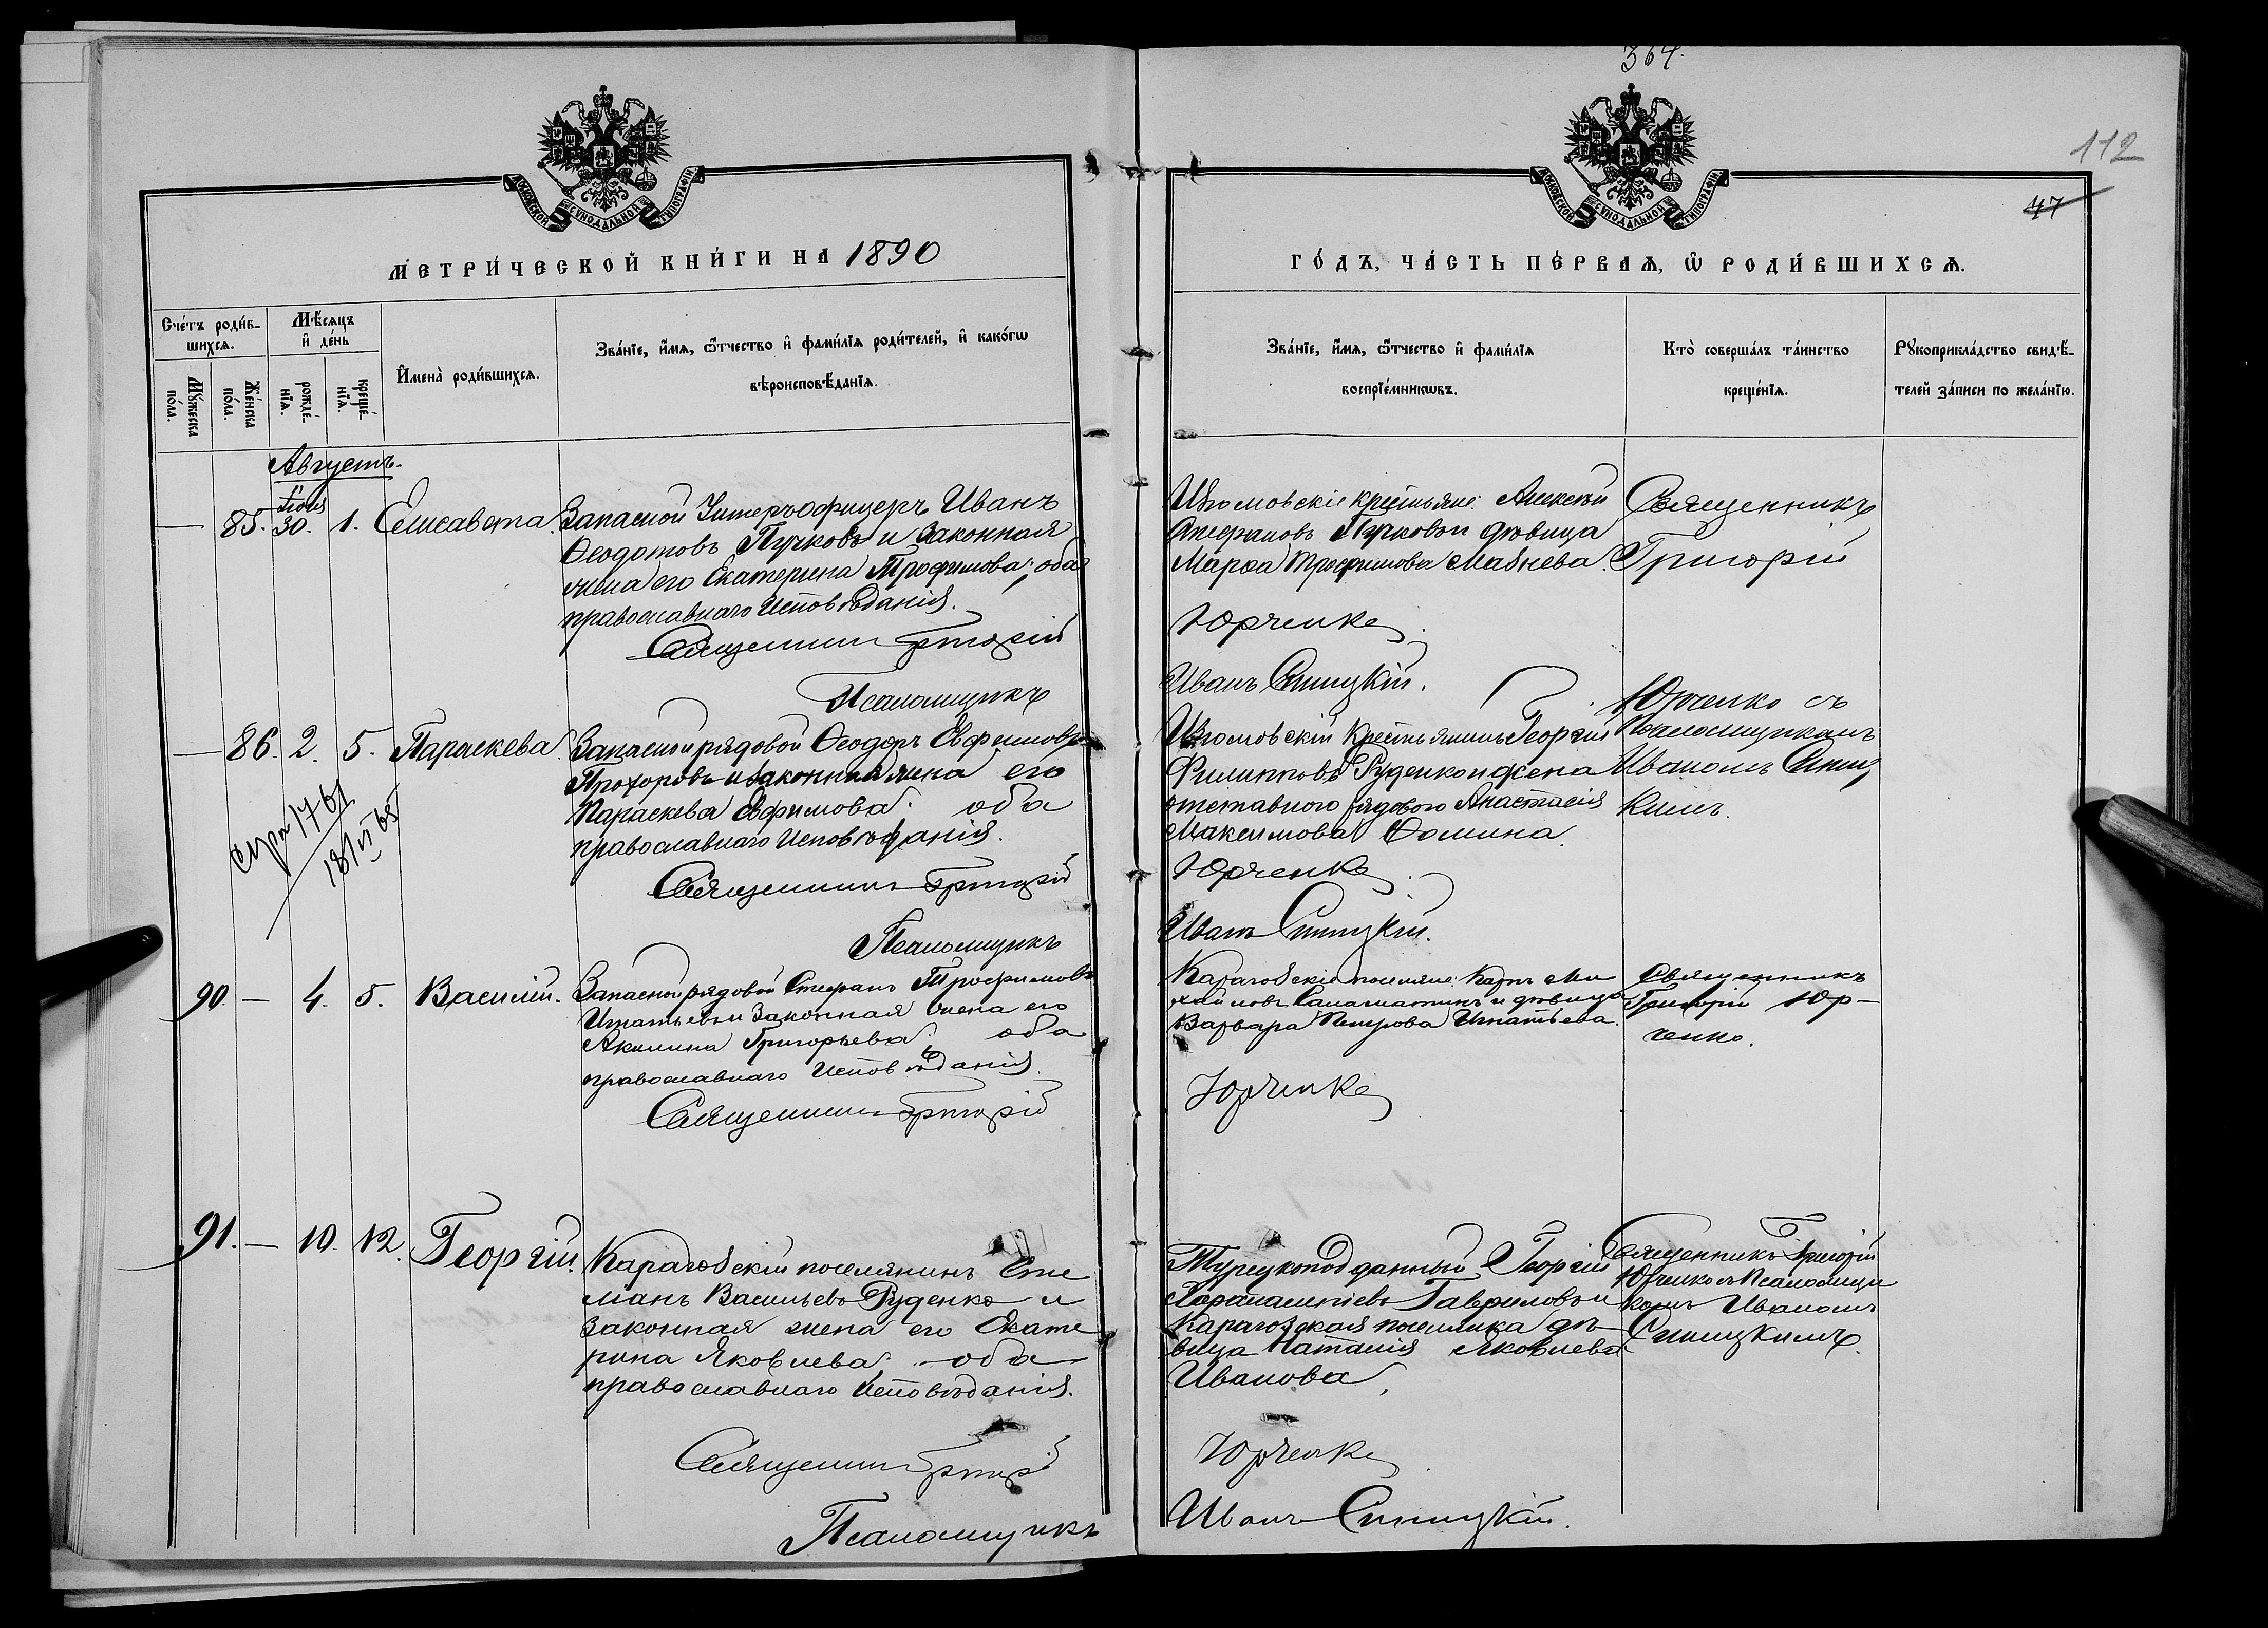 364.
112
47
МОСКОВСКОЙ СѴНОДАЛЬНОЙ ТИПОГРАФІИ
МОСКОВСКОЙ СѴНОДАЛЬНОЙ ТИПОГРАФІИ
МЕТРИ́ЧЕСКОЙ КНИ́ГИ НА 1890
ГО́ДЪ, ЧА́СТЬ ПЕ́РВАѦ, Ѽ РОДИ́ВШИХСѦ.
Сче́тъ роди́в-
шихсѧ.
Мѣ́сѧцъ
и҆ де́нь
Мꙋ́жеска
по́ла.
Же́нска
по́ла.
рожде́-
нїѧ.
креще́-
нїѧ.
И҆мена̀ роди́вшихсѧ.
Зва́нїе, и҆́мѧ, ѻ҆́тчество и҆ фами́лїѧ роди́телей, и҆ како́гѡ
вѣроисповѣ́данїѧ.
Зва́нїе, и҆́мѧ, ѻ҆́тчество и҆ фами́лїѧ
воспрїе́мникѡвъ.
Кто̀ соверша́лъ та́инство
креще́нїѧ.
Рꙋкоприкла́дство свидѣ́-
телей за́писи по жела́нїю.
Августъ.
Іюля
— 85. 30. 1. Елисавета.
Запасной Унтеръ-офицеръ Иванъ
Ѳеодотовъ Пучковъ и законная
жена его Екатерина Трофимова; оба
православнаго Исповѣданія.
Священникъ Григорій
Псаломщикъ
крестьяне: Алексѣй
Стефановъ Пучковъ и дѣвица
Марѳа Трофимова
Юрченко.
Иванъ Синицкій.
Священникъ
Григорій
Юрченко съ
Псаломщикомъ
Иваномъ Синиц
кимъ.
— 86. 2. 5. Параскева.
Запасной рядовой Ѳеодоръ Евфимовъ
Прохоровъ и законная жена его
Параскева Евфимова: оба
православнаго Исповѣданія.
Священникъ Григорій
Псаломщикъ
1761
18/VI 65
крестьянинъ Георгій
Филипповъ Руденко и жена
отставного рядового Анастасія
Максимова Ѳомина.
Юрченко.
Иванъ Синицкій.
90. — 4. 5. Василій.
Запасной рядовой Стефанъ Трофимовъ
Игнатьевъ и законная жена его
Акилина Григорьева; оба
православнаго Исповѣданія.
Священникъ Григорій
Карагозскіе поселяне: Карпъ Ми
хайловъ Саламатинъ и дѣвица
Варвара Петрова Игнатьева.
Юрченко
Священникъ
Григорій Юр-
ченко.
91. — 10. 12. Георгій.
Карагозскій поселянинъ Еме
Васильевъ Руденко и
законная жена его Екате
рина Яковлева: оба
православнаго Исповѣданія.
Священникъ Григорій
Псаломщикъ
Турецкоподданный Георгій
Харалампіевъ Гавриловъ и
Карагозская поселянка дѣ-
вица Наталія Яковлева
Иванова.
Юрченко
Иванъ Синицкій.
Священникъ Григорій
Юрченко съ Псаломщи
комъ Иваномъ
Синицкимъ.